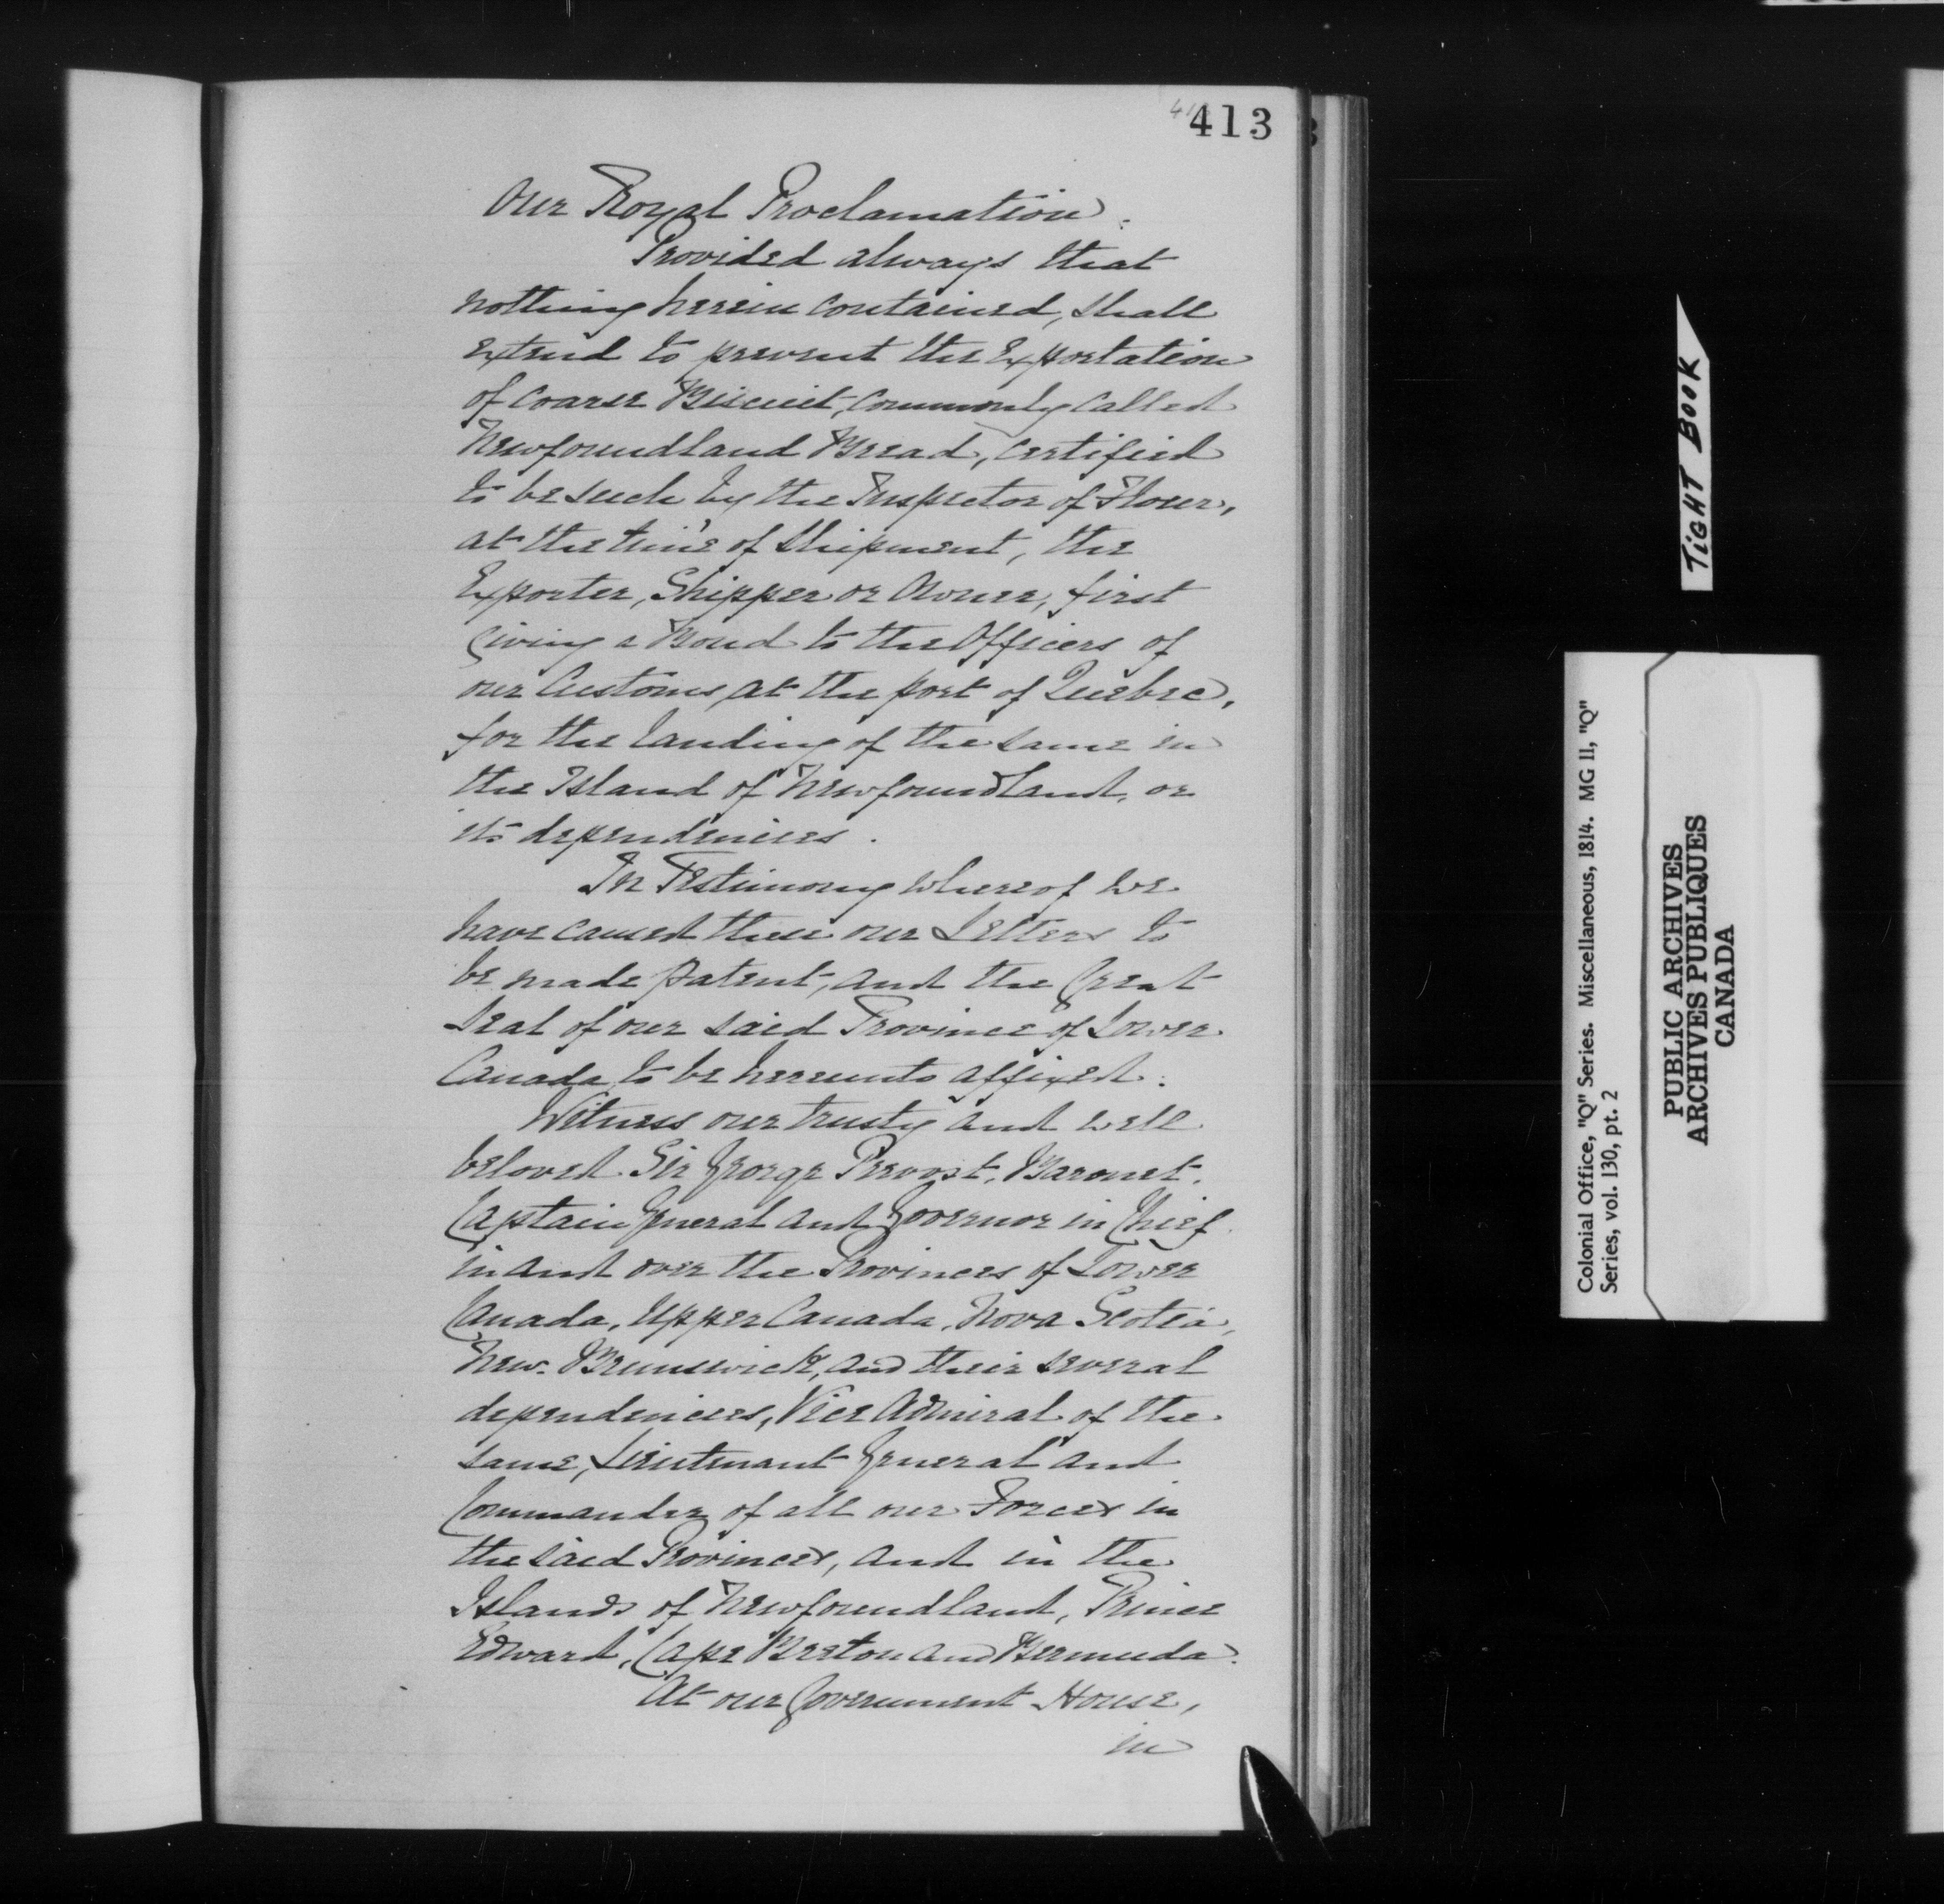 413
Our Royal Proclamation.
Provided always that
nothing herein contained, shall
extend to prevent the Exportation
of Coarse Biscuit, Commonly called
Newfoundland Bread, certified
to be such by the Inspector of Flour,
at the time of Shipment, the
Exporter, Shipper or Owner, first
Giving a Bond to the Officers of
our Customs, at the port of Quebec,
for the landing of the same in
the Island of Newfoundland, or
its dependencies.
In Testimony whereof we
have caused these our Letters to
be made Patent, and the Great
Seal of our said Province of Lower
Canada to be hereunto affixed.
Witness our trusty and well
beloved Sir George Prevost, Baronet,
Captain General and Governor in Chief
in and over the Provinces of Lower
Canada, Upper Canada, Nova Scotia,
New-Brunswick, and their several
dependencies, Vice Admiral of the
same, Lieutenant General and
Commander of all our Forces in
the said Provinces, and in the
Islands of Newfoundland, Prince
Edward, Cape Breton and Bermuda.
At our Government House,
in
TIGHT BOOK
Colonial Office, "Q" Series. Miscellaneous, 1814. MG 11, "Q"
Series, vol. 130, pt. 2
PUBLIC ARCHIVES
ARCHIVES PUBLIQUES
CANADA